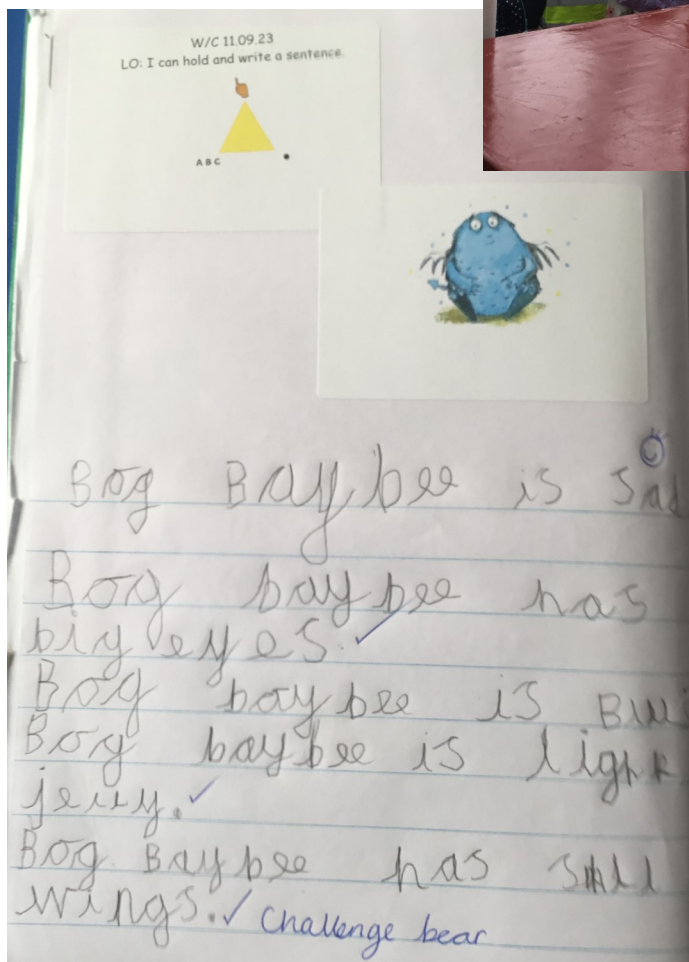 W/C 11.09.23
LO: I can hold and write a sentence.
A B C
Bog Baybee is sad
Bog baybee has
big eyes.
Bog baybee is
Bog baybee is
jelly.
Bog Baybee has
wings.
Challenge bear